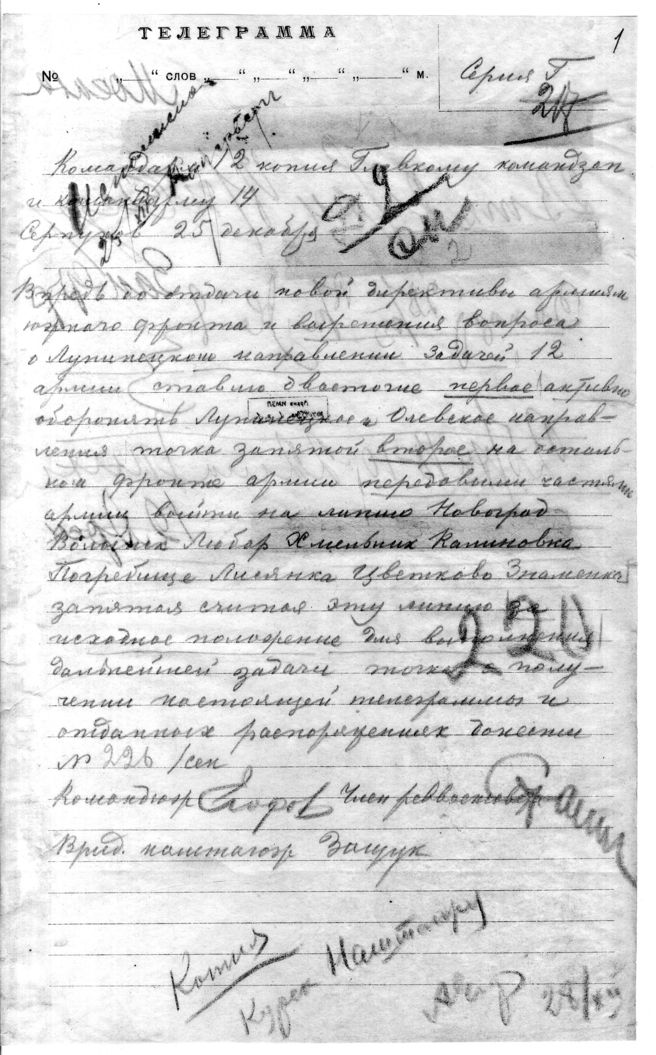 ТЕЛЕГРАММА
1
№ „ “ слов „ “ „ “ „ “ „ “ м.
Серия Г
217
Командарм 12 копия Главкому командзап
и командарму 14
Серпухов 25 декабря
Впредь до отдачи новой директивы армиям
южного фронта и выяснения вопроса
о Лунинецком направлении задачей 12
армии ставлю двоеточие первое активно
оборонять Лунинецкое и Олевское направ-
ления точка запятой второе на осталь-
ном фронте армии передовыми частями
армии войти на линию Новоград
Волынск Любар Хмельник Калиновка
Погребище Лисянка Цветково Знаменка
запятая считая эту линию за
исходное положение для выполнения
дальнейшей задачи точка о полу-
чении настоящей телеграммы и
отданных распоряжениях донести
№ 226/сек
220
Командюж Егоров Член реввоенсовета
Врид. наштаюж Защук
Копия
Наштарму
28/XII